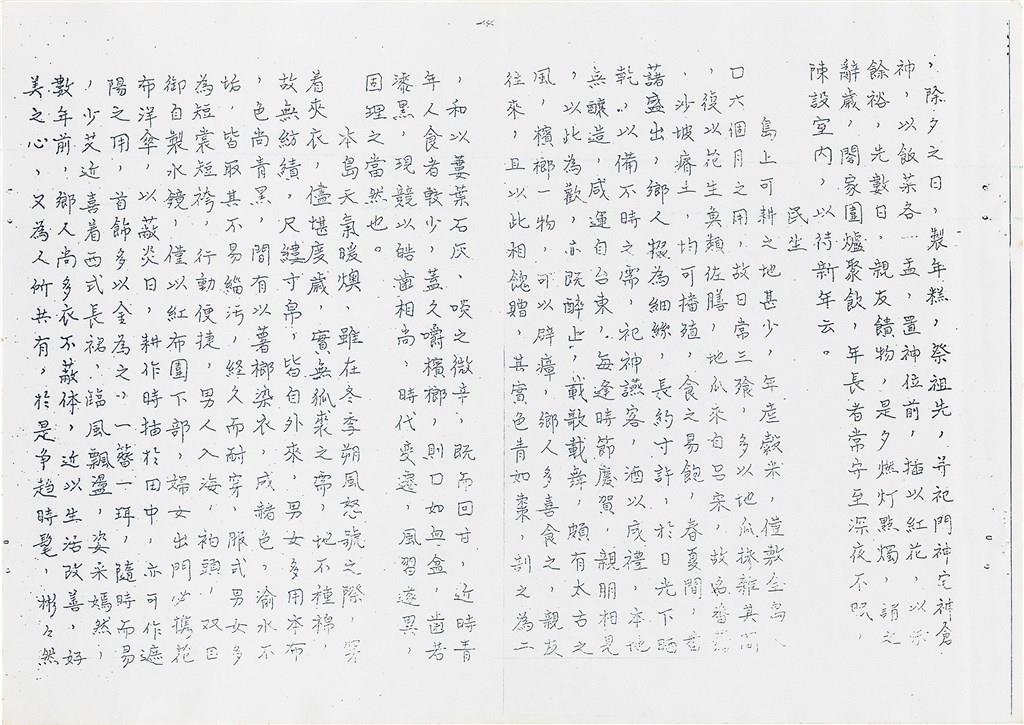 ，除夕之日，製年糕，祭祖先，并祀門神宅神倉
神，以飯菜各一盂，置神位前，插以紅花，以示
餘裕，先數日，親友饋物，是夕燃灯點燭，謂之
辭歲，閤家圍爐聚飲，年長者常守至深夜不眠，
陳設室內，以待新年云。
民生
島上可耕之地甚少，年產穀米，僅敷全島人
口六個月之用，故日常三飱，多以地瓜摻雜其間
，復以花生魚類佐膳，地瓜來自呂宋，故名番薯
，沙坡瘠土，均可播殖，食之易飽，春夏間，番
藷盛出，鄉人掇為細絲，長約寸許，於日光下晒
乾，以備不時之需，祀神讌客，酒以成禮，本地
無釀造，咸運自台東，每逢時節慶賀，親朋相見
，以此為歡，亦既醉止，載歌載舞，頗有太古之
風，檳榔一物，可以辟瘴，鄉人多喜食之，親友
往來，且以此相餽贈，其實色青如棗，剖之為二
，和以蔞葉石灰，啖之微辛，既而回甘，近時青
年人食者較少，蓋久嚼檳榔，則口如血盒，齒若
漆黑，現競以皓齒相尚，時代變遷，風習遂異，
固理之當然也。
本島天氣暖燠，雖在冬季朔風怒號之際，穿
着夾衣，儘堪度歲，實無狐裘之需，地不種棉，
故無紡績，尺縷寸帛，皆自外來，男女多用本布
，色尚青黑，間有以薯榔染衣，成赭色，渝水不
垢，皆取其不易緇污，經久而耐穿，服式男女多
為短裳短袴，行動便捷，男人入海，袒頭，双目
御自製水鏡，僅以紅布圍下部，婦女出門必携花
布洋傘，以蔽炎日，耕作時插於田中，亦可作遮
陽之用，首飾多以金為之，一簪一珥，隨時而易
，少艾近喜着西式長裙，臨風飄盪，姿采嫣然，
數年前，鄉人尚多衣不蔽体，近以生活改善，好
美之心，又為人所共有，於是争趋時髦，彬々然